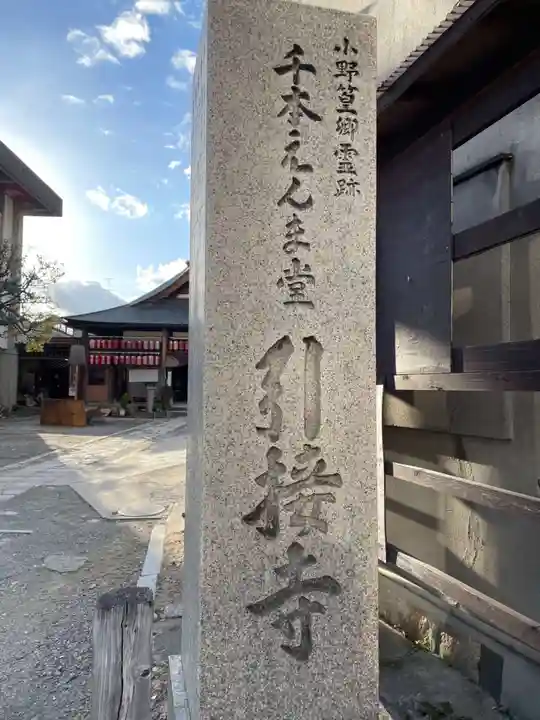 小野篁卿霊跡
千本えんま堂
引接寺